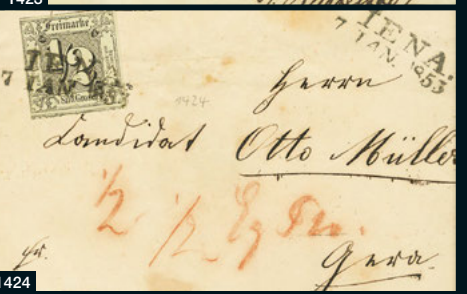 1423
Freimarke
1/2
IENA.
7 IAN. 1853
IENA.
7 IAN. 1853
1424
Herrn
Candidat Otto Müller
1/2 1/2
fr.
Gera.
1424